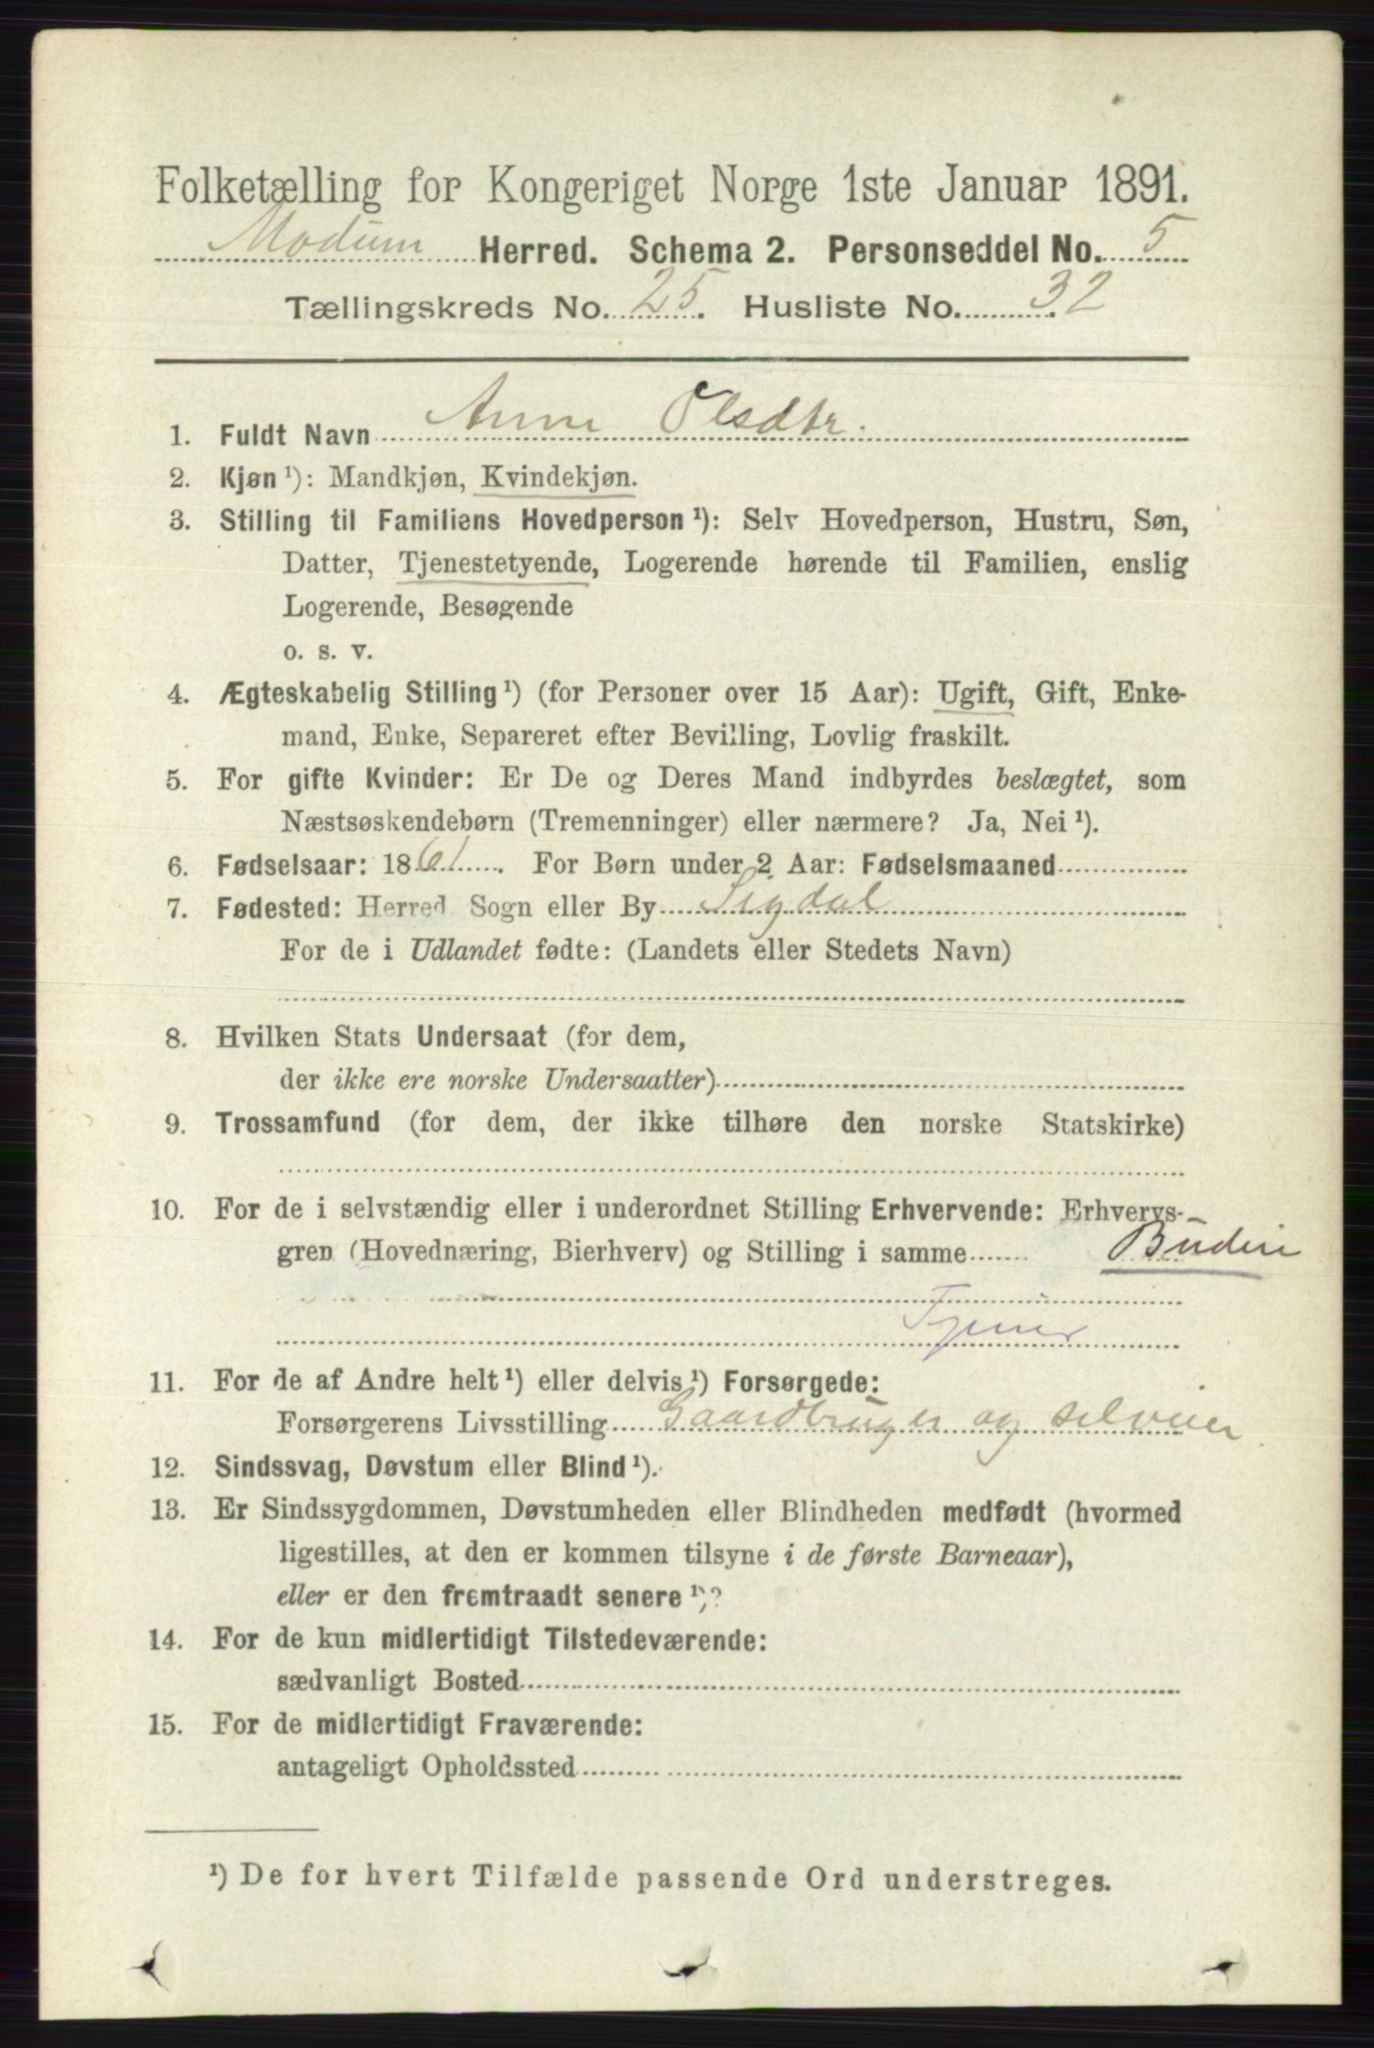 Folketælling for Kongeriget Norge 1ste Januar 1891.
Modum Herred. Schema 2. Personseddel No. 5
Tællingskreds No. 25. Husliste No. 32
1. Fuldt Navn Anne Olsdtr.
2. Kjøn ¹): Mandkjøn, Kvindekjøn.
3. Stilling til Familiens Hovedperson ¹): Selv Hovedperson, Hustru, Søn,
Datter, Tjenestetyende, Logerende hørende til Familien, enslig
Logerende, Besøgende
o. s. v.
4. Ægteskabelig Stilling ¹) (for Personer over 15 Aar): Ugift, Gift, Enke-
mand, Enke, Separeret efter Bevilling, Lovlig fraskilt.
5. For gifte Kvinder: Er De og Deres Mand indbyrdes beslægtet, som
Næstsøskendebørn (Tremenninger) eller nærmere? Ja, Nei ¹).
6. Fødselsaar: 1861. For Børn under 2 Aar: Fødselsmaaned
7. Fødested: Herred Sogn eller By Sigdal
For de i Udlandet fødte: (Landets eller Stedets Navn)
8. Hvilken Stats Undersaat (for dem,
der ikke ere norske Undersaatter)
9. Trossamfund (for dem, der ikke tilhøre den norske Statskirke)
10. For de i selvstændig eller i underordnet Stilling Erhvervende: Erhvervs-
gren (Hovednæring, Bierhverv) og Stilling i samme Budeie
Tjener
11. For de af Andre helt ¹) eller delvis ¹) Forsørgede:
Forsørgerens Livsstilling Gaardbruger og selveier
12. Sindssvag, Døvstum eller Blind ¹).
13. Er Sindssygdommen, Døvstumheden eller Blindheden medfødt (hvormed
ligestilles, at den er kommen tilsyne i de første Barneaar),
eller er den fremtraadt senere ¹)?
14. For de kun midlertidigt Tilstedeværende:
sædvanligt Bosted
15. For de midlertidigt Fraværende:
antageligt Opholdssted
¹) De for hvert Tilfælde passende Ord understreges.